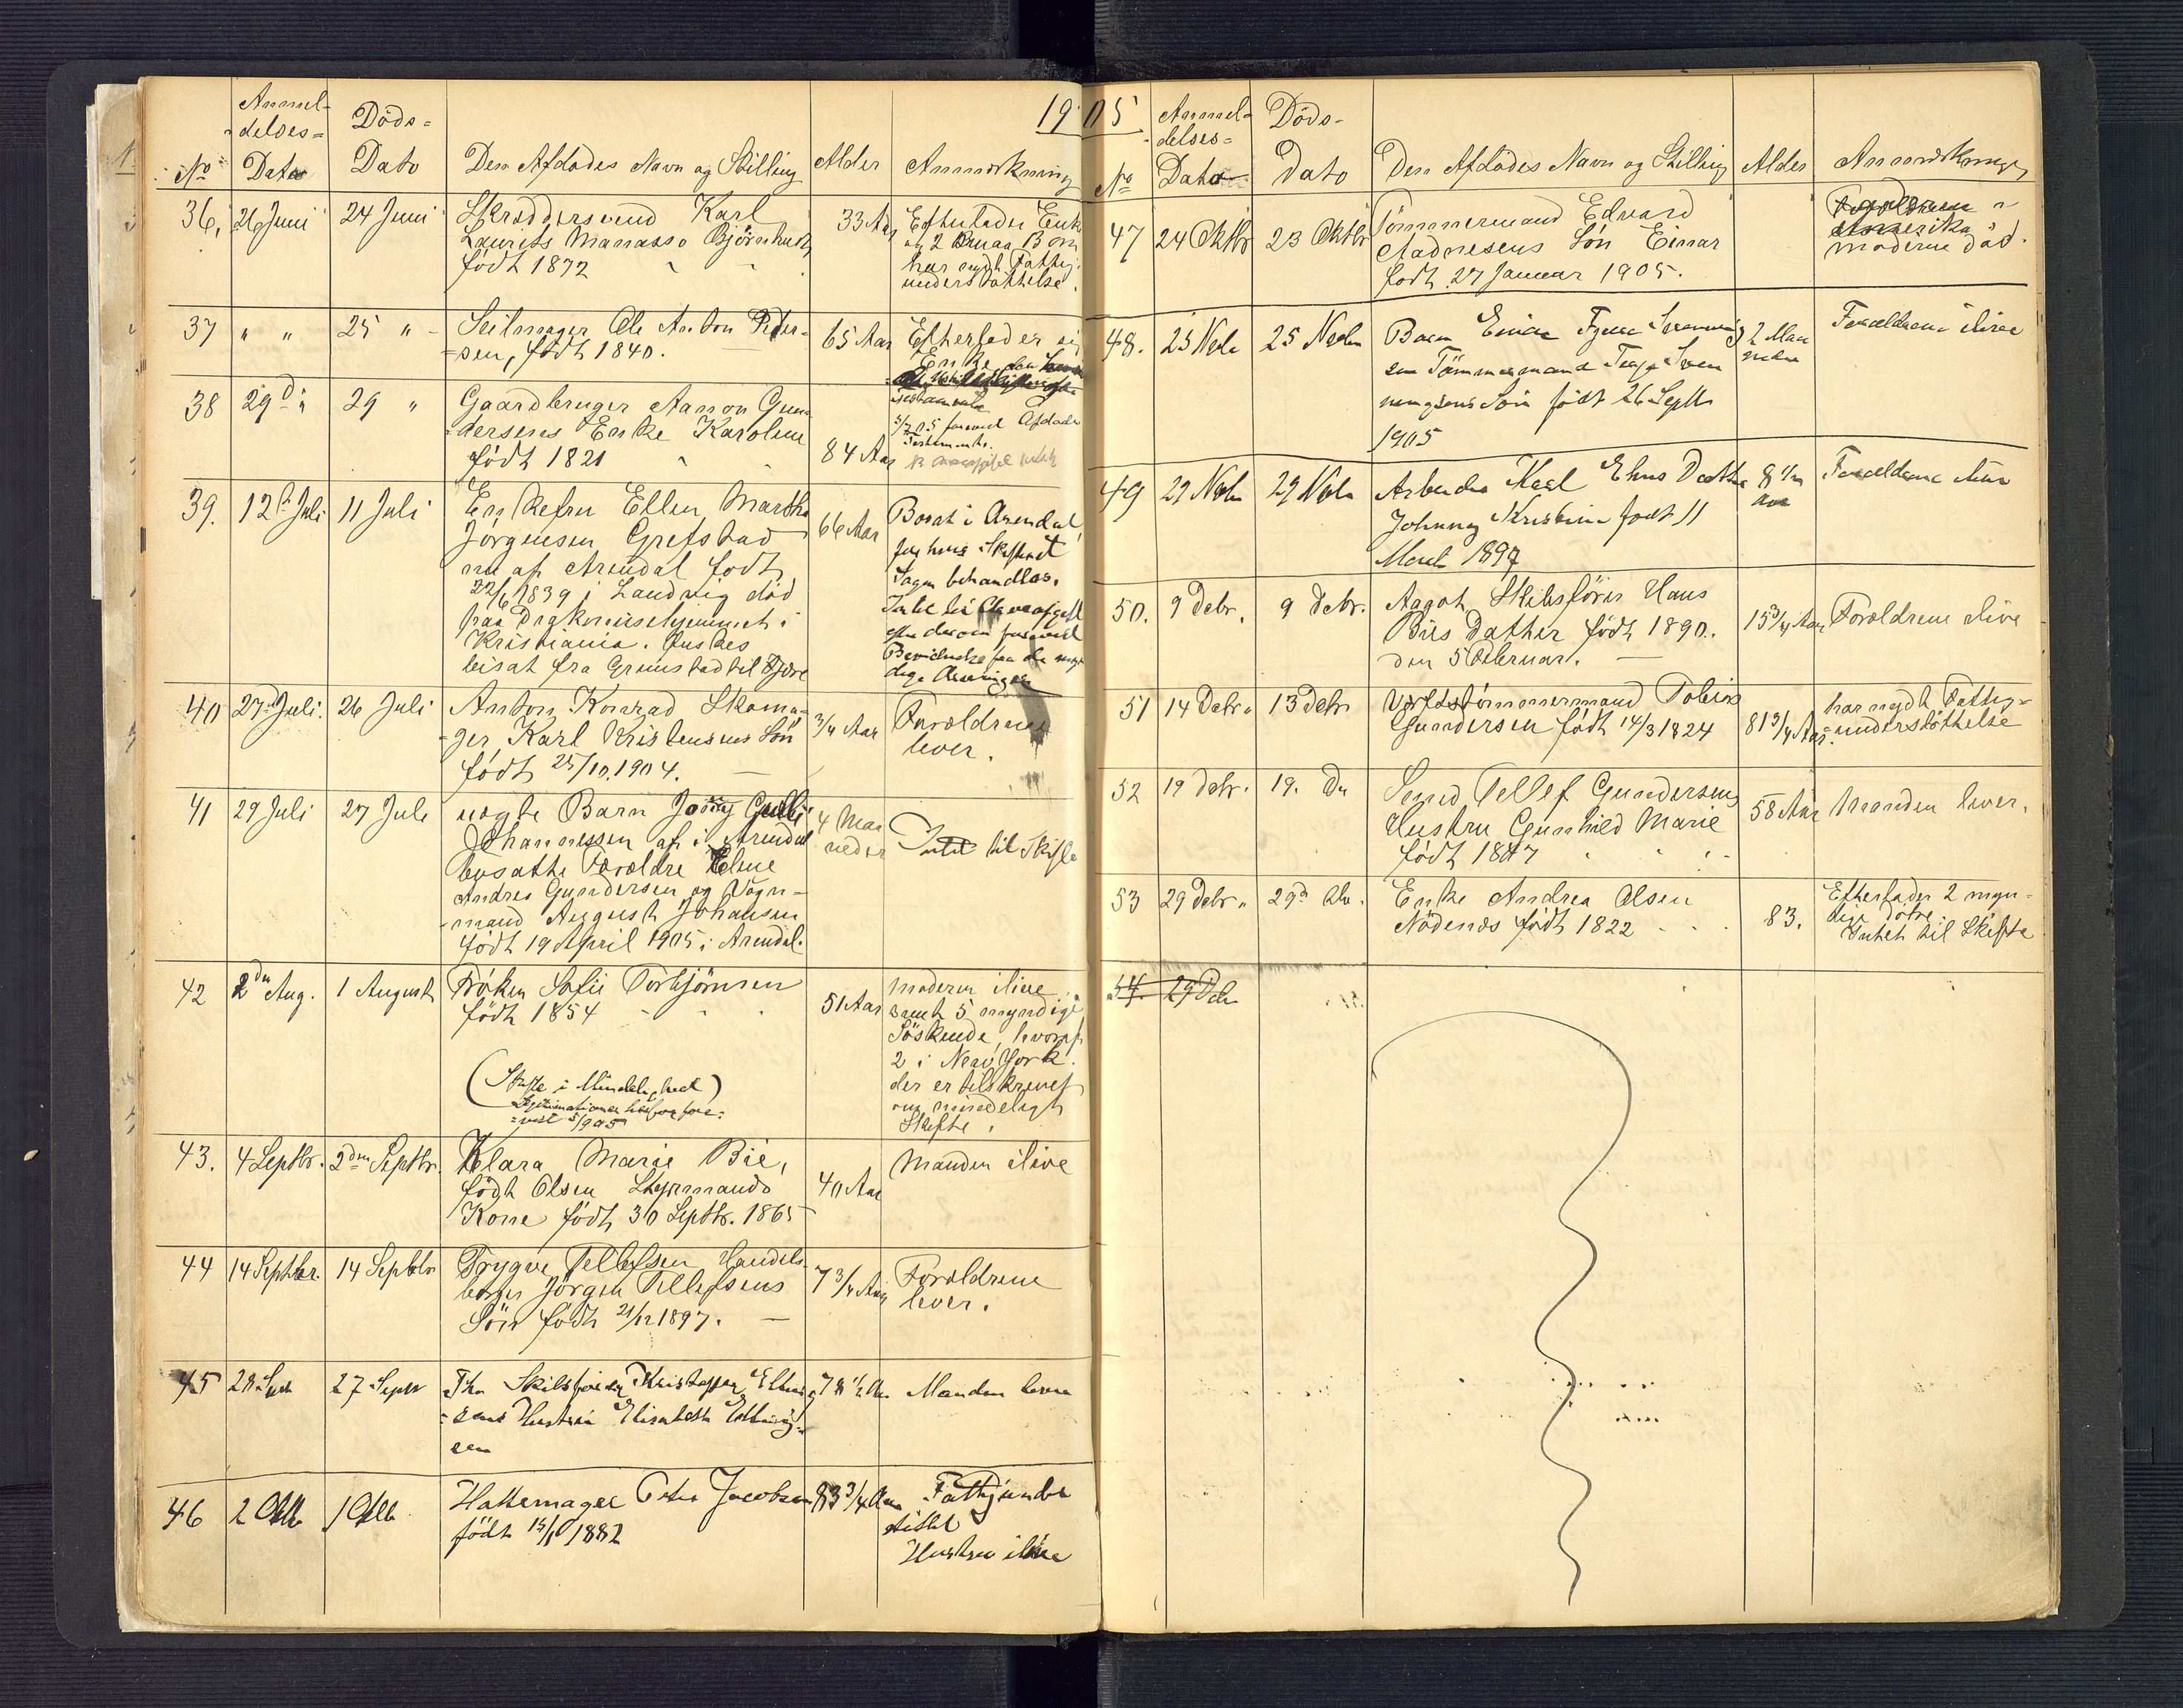 1905
Anmel-
delses=
Dato
Döds=
Dato
No
Den Afdödes Navn og Stilling
Alder
Anmærkning
36,
26 Juni
24 Juni
Skræddersvend Karl
Laurits Manasse
födt 1872
33 Aar
Efterlader Enke
og 2 smaa Börn
har nydt Fattig-
understöttelse.
37
" "
25 "
Seilmager Ole Anton Peder-
=sen, födt 1840.
65 Aar
Efterlader sig
Enke
38
29 d
29 "
Gaardbruger Aanon Gun-
dersens Enke Karoline
födt 1821
84 Aar
39.
12 Juli
11 Juli
Enkefru Ellen Marthe
Jörgensen Grefstad
nu af Arendal födt
22/6 1839 i Landvig död
paa Diakonissehjemmet i
Kristiania. Önskes
beisat fra Grimstad til Fjære
66 Aar
Bosat i Arendal,
for hvis Skifteret
Sagen behandles.
40
27 Juli.
26 Juli
Anton Konrad Skoma-
ger Karl Kristensens Sön
födt 25/10.1904.
3/4 Aar
Forældrene
lever.
41
29 Juli
27 Juli
uægte Barn
Johannessen af i Arendal
bosatte Forældre Heline
Andrea Gundersen og Vogn-
mand August Johansen
födt 19 April 1905 i Arendal.
4 Maa
neder
Intet til Skifte
42
2den Aug.
1 August
Fröken Sofie Torbjörnsen
födt 1854
(Skifte i Mindelighed)
51 Aar
Moderen ilive
samt 5 myndige
Söskende, hvoraf
2 i New York.
der er tilskrevet
om mindeligt
Skifte.
43.
4 Septbr.
2den Septbr.
Klara Marie Bie,
födt Olsen Styrmands
Kone födt 30 Septbr. 1865
40 Aar
Manden ilive
44
14 Septbr.
14 Septbr
Trygve Tellefsen Handels-
Jörgen Tellefsens
Sön födt 21/12 1897.
7 3/4 Aar
Forældrene
lever.
45
28 Sept
27 Sept
Skibsförer Kristoffer
=sens Hustru Elisabeth
sen
78 1/2 Aar
Manden lever
46
2 Oktb
1 Oktb
Hattemager Peter Jacobsen
födt
83 3/4 Aar
Fattigunder
stöttet
Hustru ilive
Anmel-
delses=
Dato
Döds-
Dato
No
Den Afdödes Navn og Stilling
Alder
Anmærkninger
47
24 Oktbr
23 Oktbr
Tömmermand Edvard
Aadnesens Sön Einar
födt 27 Januar 1905.
Forældrene i
Amerika
moderen död.
48.
25 Novbr
25 Novbr
Barn Einar
sen Tömmermand
Sön födt 26 Septbr
1905
2 Maa
neder
Forældrene ilive
49
29 Novbr
29 Novbr
Arbeider Karl Datter
Johanna Kristine födt 11
Marts 1897
8 1/2
Aar
Forældrene ilive
50.
9 Debr.
9 Debr.
Aagot, Skibsförer Hans
Bies Datter födt 1890.
den 5 Februar.
15 3/4 Aar
Forældrene ilive
51
14 Debr.
13 Debr
Værftstömmermand Tobias
Gundersen födt 14/3 1824
81 3/4 Aar.
har nydt Fattig-
understöttelse
52
19 Debr.
19. Ds
Smed Tellef Gundersens
Hustru Gunhild Marie
födt 1847
58 Aar
Manden lever.
53
29 Debr.
29d
Enke Andrea Olsen
Nödenes födt 1822
83.
Efterlader 2 myn-
dige Dötre
Intet til Skifte
54.
29 Deb